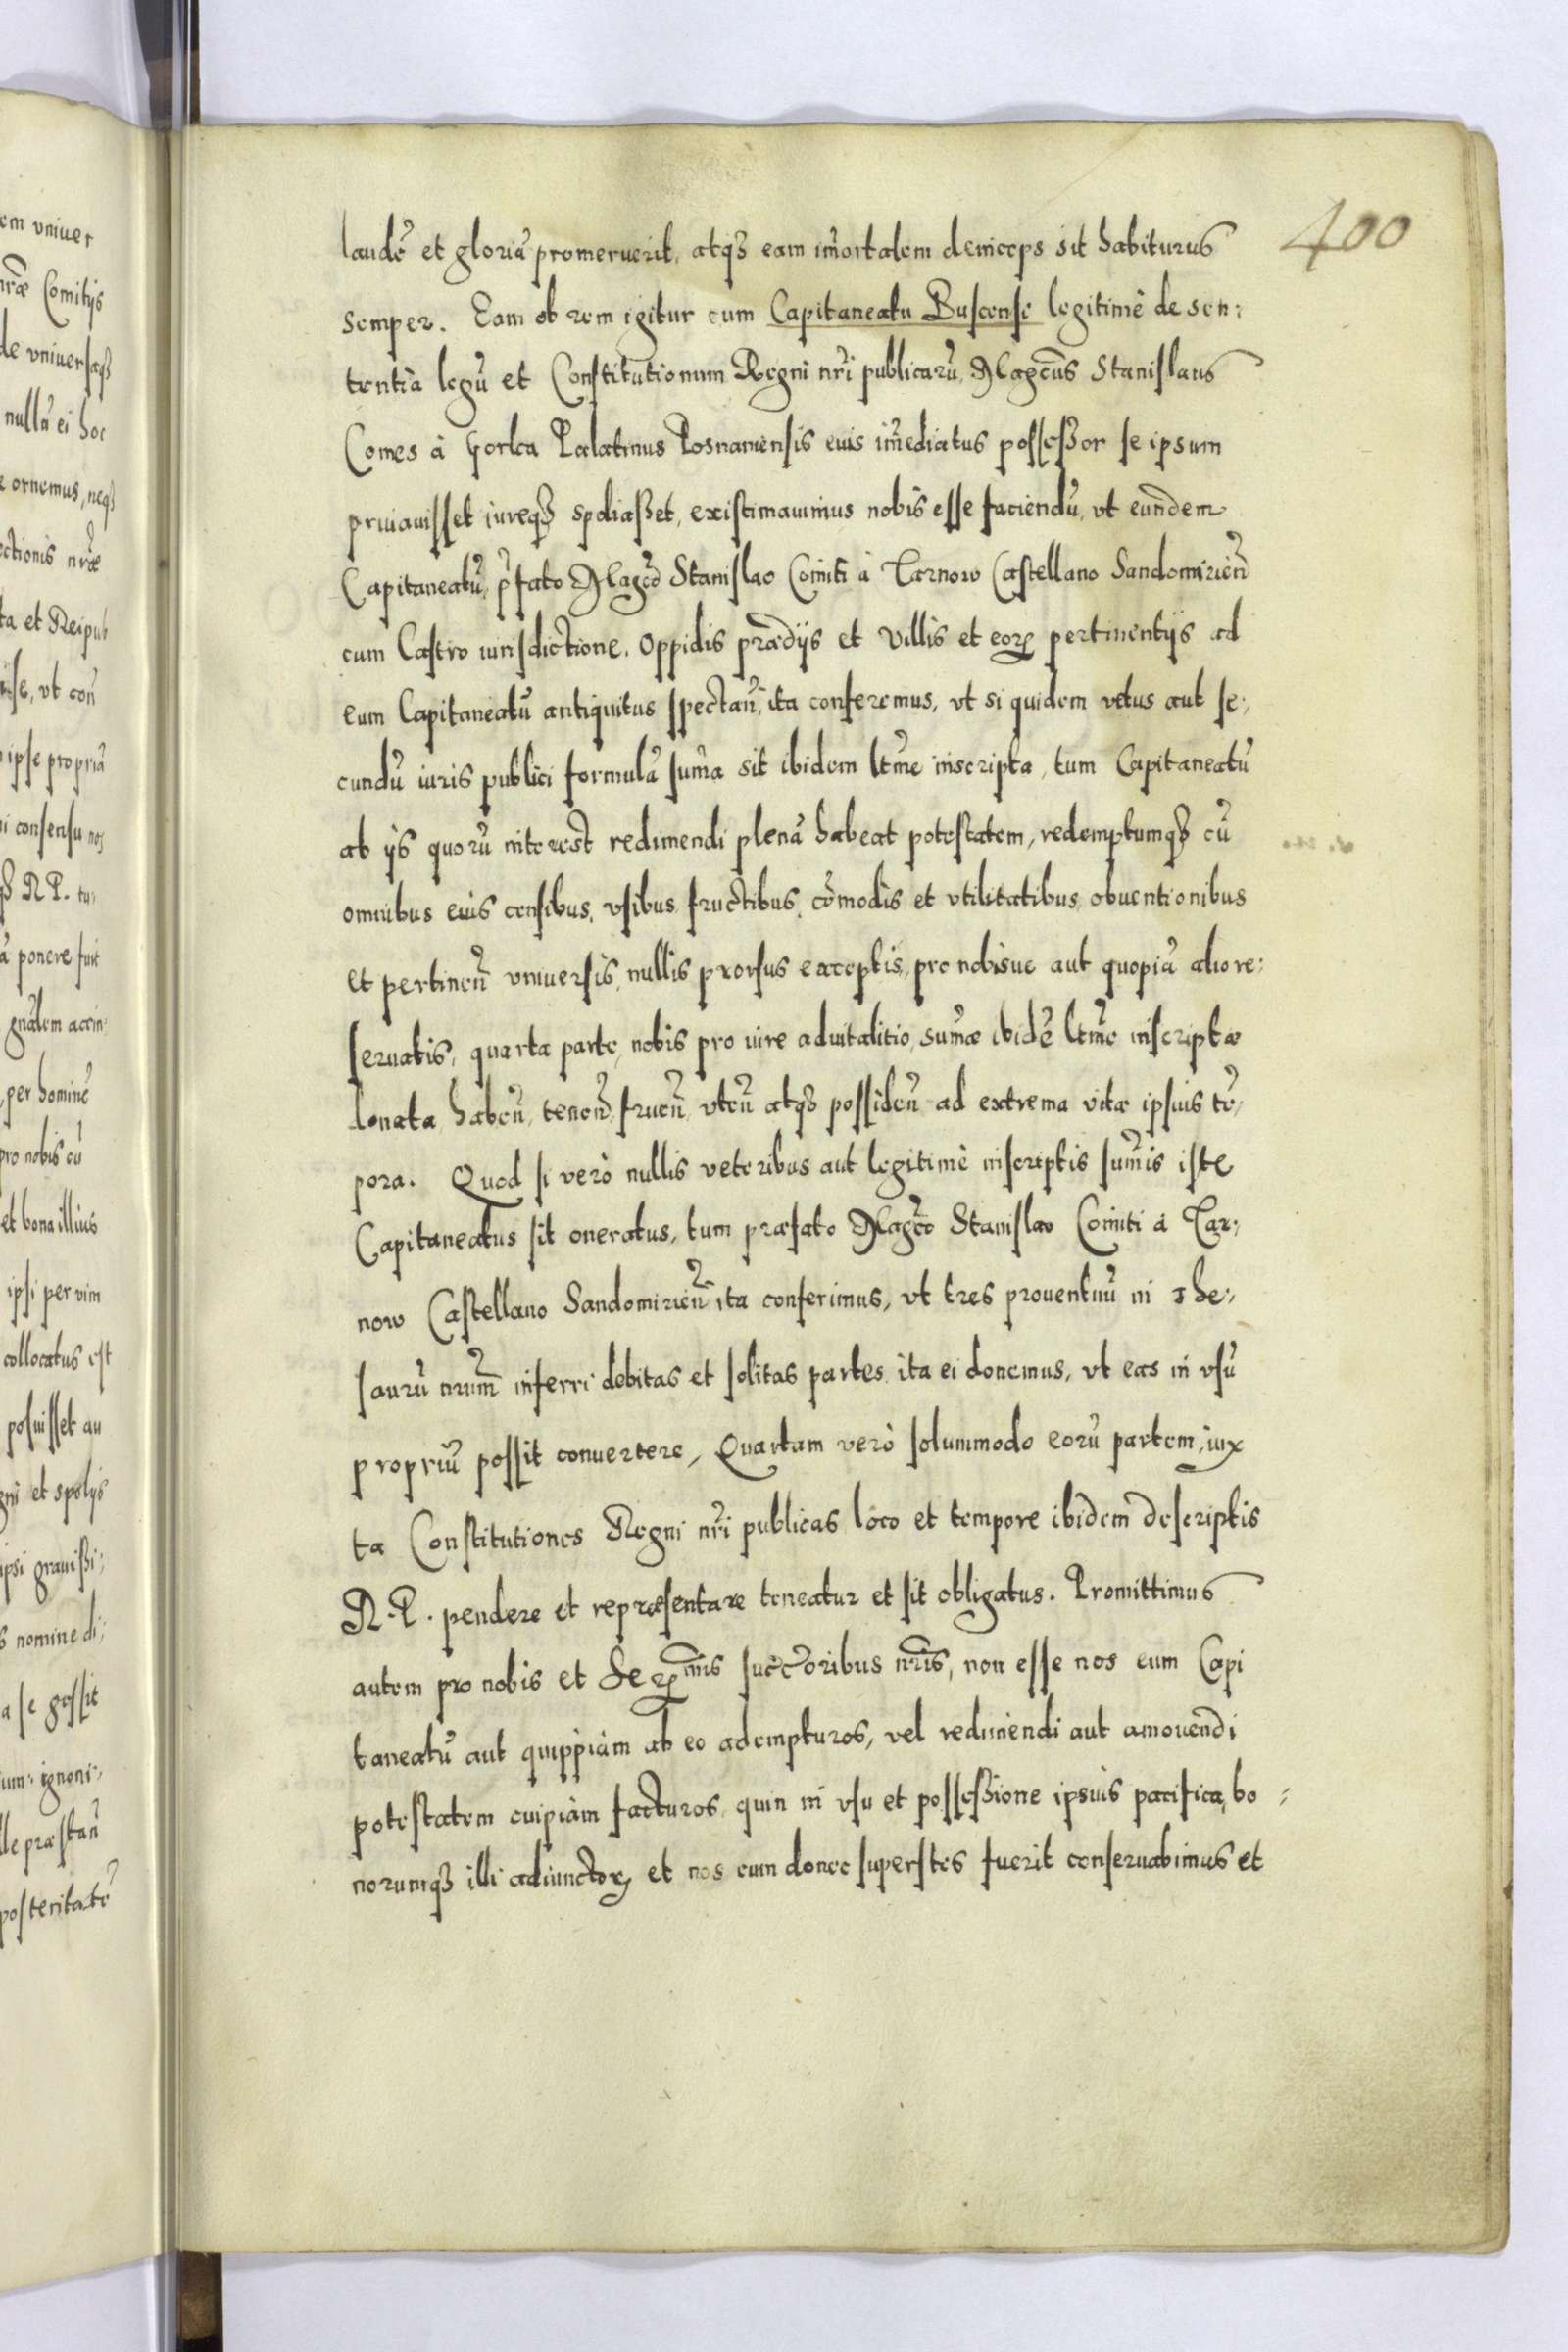 400
laudẽ et gloriã promeruerit, atq₃ eam im̃ortalem deinceps sit habiturus
semper. Eam ob rem igitur cum Capitaneatu Buscensi legitimè de sen:
tentia legũ et Constitutionum Regni nr̃i publicarũ, Magcũs Stanislaus
Comes à Gorka Palatinus Posnaniensis euis im̃ediatus possessor se ipsum
priuauisset iureq₃ spoliasset, existimauimus nobis esse faciendũ, vt eundem
Capitaneatũ, p̃fato Magcõ Stanislao Comiti à Tarnow Castellano Sandomirieñ
cum Castro iurisdictione, oppidis prædijs et villis et eorꝝ pertinentijs ad
eum Capitaneatũ antiquitus spectañ, ita conferemus, vt si quidem vetus aut se:
cundũ iuris publici formulã sum̃a sit ibidem ltme inscripta, tum Capitaneatũ
ab ijs quorũ interest redimendi plenã habeat potestatem, redemptumq₃ cũ
omnibus euis censibus, vsibus fructibus, cõmodis et vtilitatibus obuentionibus
et pertineñ vniuersis, nullis prorsus exceptis, pro nobisue aut quopiã alio re:
seruatis, quarta parte nobis pro iure aduitalitio, sum̃æ ibidẽ ltme inscriptæ
donata habeñ, teneñ, frueñ, vteñ atq₃ possideñ ad extrema vitæ ipsius tẽ:
pora. Quod si verò nullis veteribus aut legitimè inscriptis sum̃is iste
Capitaneatus sit oneratus, tum præfato Magcõ Stanislao Comiti à Tar:
now Castellano Sandomirieñ ita conferimus, vt tres prouentuũ in The:
saurũ nrũm inferri debitas et solitas partes ita ei donemus, vt eas in vsũ
propriũ possit conuertere, Quartam verò solummodo eorũ partem, iux
ta Constitutiones Regni nr̃i publicas loco et tempore ibidem descriptis
R. P. pendere et repræsentare teneatur et sit obligatus. Promittimus
autem pro nobis et Serꝝmis succ̃oribus nr̃is, non esse nos eum Capi
taneatũ aut quippiam ab eo adempturos, vel redimendi aut amouendi
potestatem cuipiam facturos, quin in vsu et possessione ipsius pacifica, bo:
norumq₃ illi adiunctorꝝ et nos eum donec superstes fuerit conseruabimus et